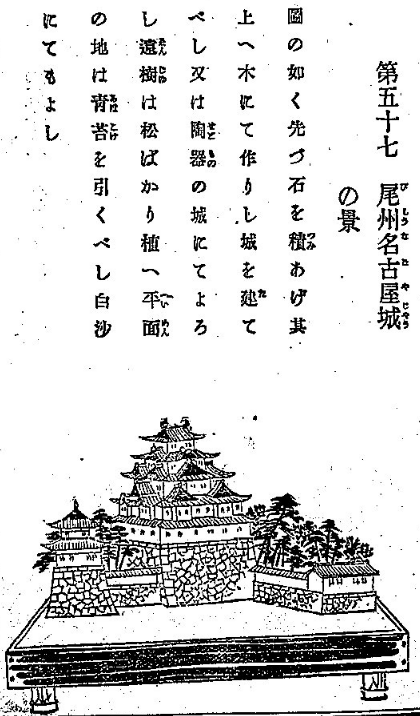 第五十七 尾州名古屋城
の景
圖の如く先づ石を積あげ其
上へ木にて作りし城を建て
べし又は陶器の城にてよろ
し遠樹は松ばかり植へ平面
の地は青苔を引くべし白沙
にてもよし